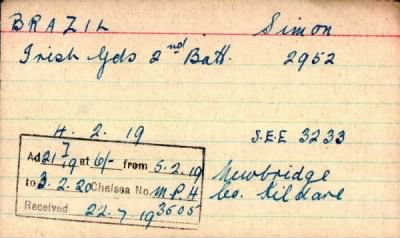 BRAZIL Simon
Irish Gds 2nd Batt. 2952
4. 2. 19 S.E.E 3233
Ad 21/7/19 at 6/- from 5.2.19
to 3.2.20 Chelsea No. M.P.H
Received 22.7.19 3605
Newbridge
Co. Kildare